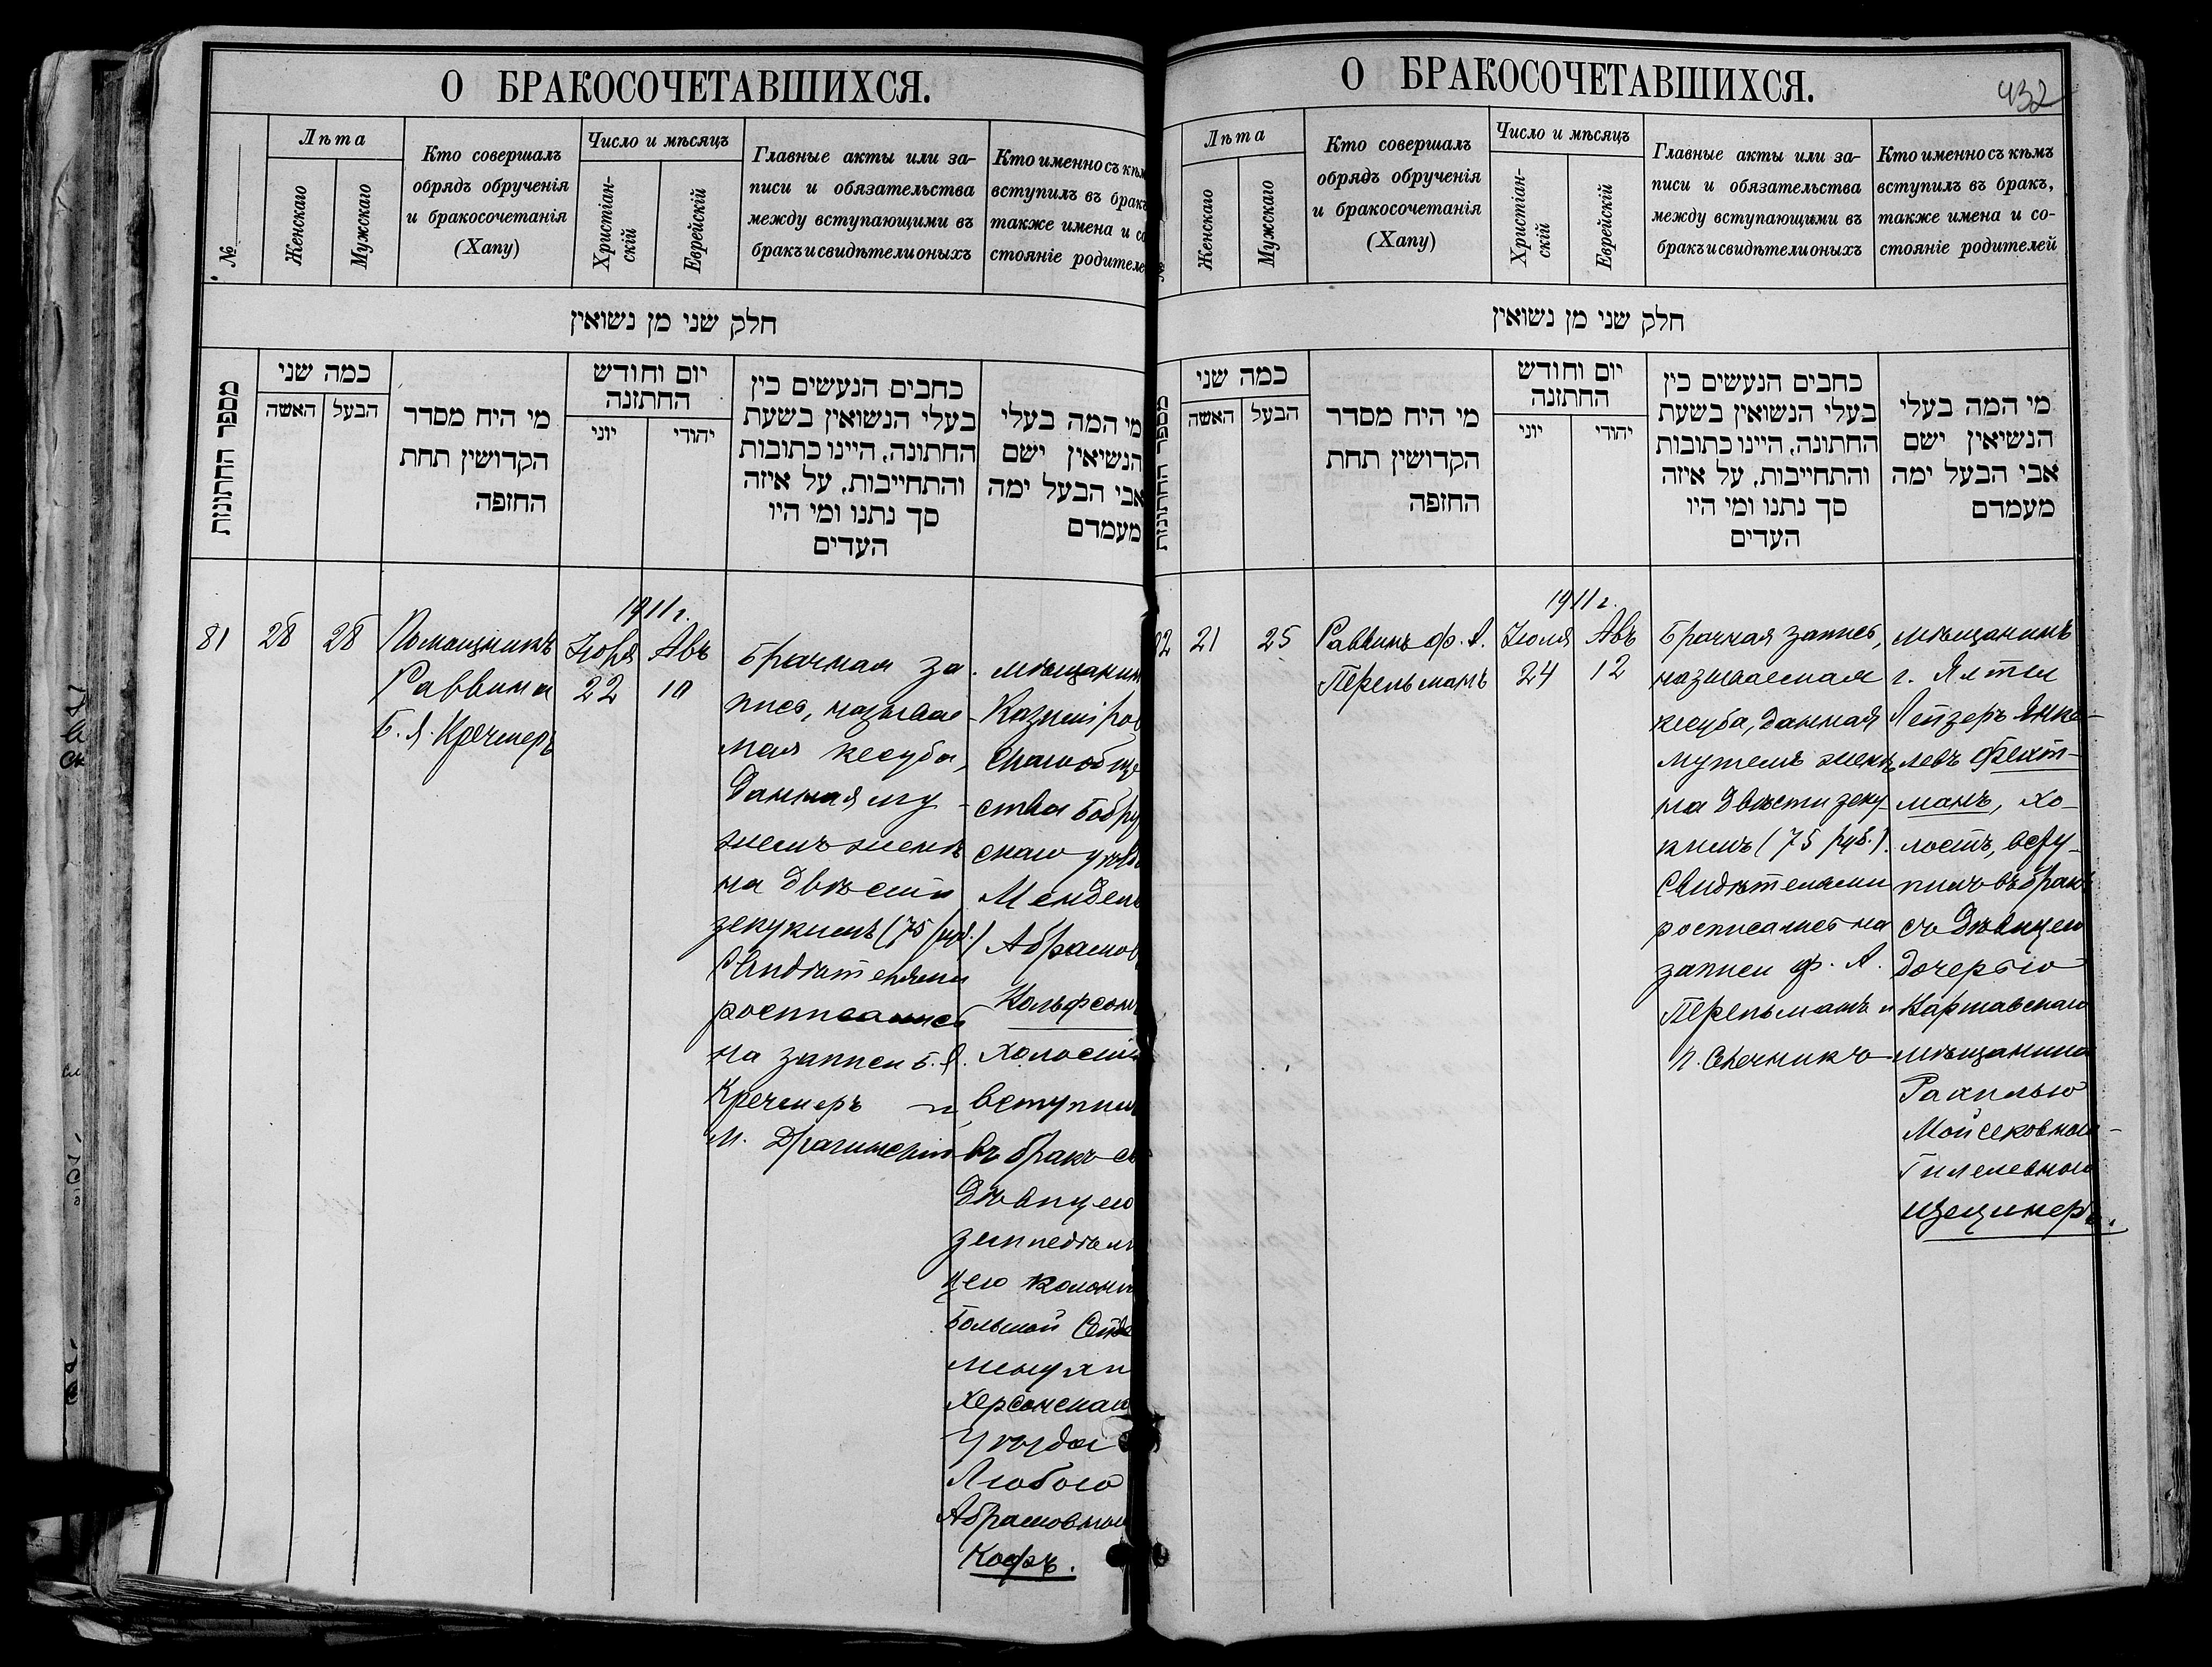 О БРАКОСОЧЕТАВШИХСЯ.
№
Лѣта
Женскаго
Мужскаго
Кто совершалъ
обрядъ обрученія
и бракосочетанія
(Хапу)
Число и мѣсяцъ
Христіан-
скій
Еврейскій
Главные акты или за-
писи и обязательства
между вступающими въ
бракъ и свидѣтели оныхъ
Кто именно съ кѣм
вступилъ въ бракъ
также имена и со
стояніе родителе
חלק שני מן נשואין
מספר החתונות
כמה שני
האשה
הבעל
מי היח מסדר
הקדושין תחת
החזפה
יום וחודש
החתזנה
יוני
יהודי
כחבים הנעשים כין
בעלי הנשואין בשעת
החתונה, היינו כתובות
והתחייבות, על איזה
סך נתנו ומי היו
העדים
מי המה בעלי
הנשיאין ישם
אבי הבעל ימה
מעמדם
81
28
28
Помощникъ
Раввина
Б. Я. Кречмеръ
1911 г.
Іюля
22
Авъ
10
Брачная за-
пись, называе-
мая кесуба,
данная му-
жемъ женѣ
на двѣсти
зекукимъ (75 руб.)
Свидѣтелями
росписались
на записи Б. Я.
Кречмеръ и
М.
мѣщанин
Казимиров
скаго обще
ства Бобруй
скаго уѣзда
Мендель
Абрамов
Кольфсонъ
холостъ
вступилъ
въ бракъ съ
дѣвицею
земледѣль
цею колоніи
Большой Сейде
менухи
Херсонскаго
Уѣзда
Любою
Абрамовною
Кофъ.
О БРАКОСОЧЕТАВШИХСЯ.
432
Лѣта
Женскаго
Мужскаго
Кто совершалъ
обрядъ обрученія
и бракосочетанія
(Хапу)
Число и мѣсяцъ
Христіан-
скій
Еврейскій
Главные акты или за-
писи и обязательства
между вступающими въ
бракъ и свидѣтели оныхъ
Кто именно съ кѣмъ
вступилъ въ бракъ,
также имена и со-
стояніе родителей
חלק שני מן נשואין
מספר החתונות
כמה שני
האשה
הבעל
מי היח מסדר
הקדושין תחת
החזפה
יום וחודש
החתזנה
יוני
יהודי
כחבים הנעשים כין
בעלי הנשואין בשעת
החתונה, היינו כתובות
והתחייבות, על איזה
סך נתנו ומי היו
העדים
מי המה בעלי
הנשיאין ישם
אבי הבעל ימה
מעמדם
21
25
Раввинъ Ф. А.
Перельманъ
1911 г.
Іюля
24
Авъ
12
Брачная запись,
называемая
кесуба, данная
мужемъ женѣ
на двѣсти зеку-
кимъ (75 руб.).
Свидѣтелями
росписались на
записи Ф. А.
Перельманъ и
П. Свечникъ
мѣщанинъ
г. Ялты
Лейзеръ Янке-
левъ Фехт-
манъ, хо-
лостъ, всту-
пилъ въ бракъ
съ дѣвицею
дочерью
Варшавскаго
мѣщанина
Рахилью
Мойсеевною-
Гилелевною
Щещинеръ.